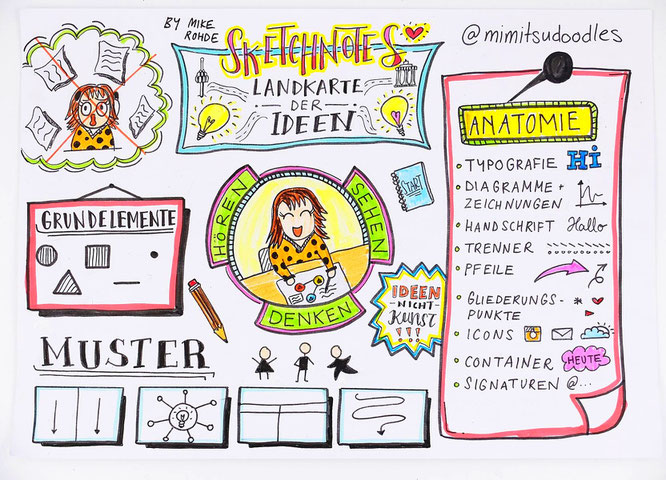 BY MIKE
ROHDE
SKETCHNOTES
LANDKARTE
DER
IDEEN
@mimitsudoodles
GRUNDELEMENTE
HÖREN
SEHEN
DENKEN
START
IDEEN
NICHT
KUNST
!!!
ANATOMIE
TYPOGRAFIE Hi
DIAGRAMME +
ZEICHNUNGEN
HANDSCHRIFT Hallo
TRENNER
PFEILE
GLIEDERUNGS-
PUNKTE
ICONS
CONTAINER HEUTE
SIGNATUREN @...
MUSTER